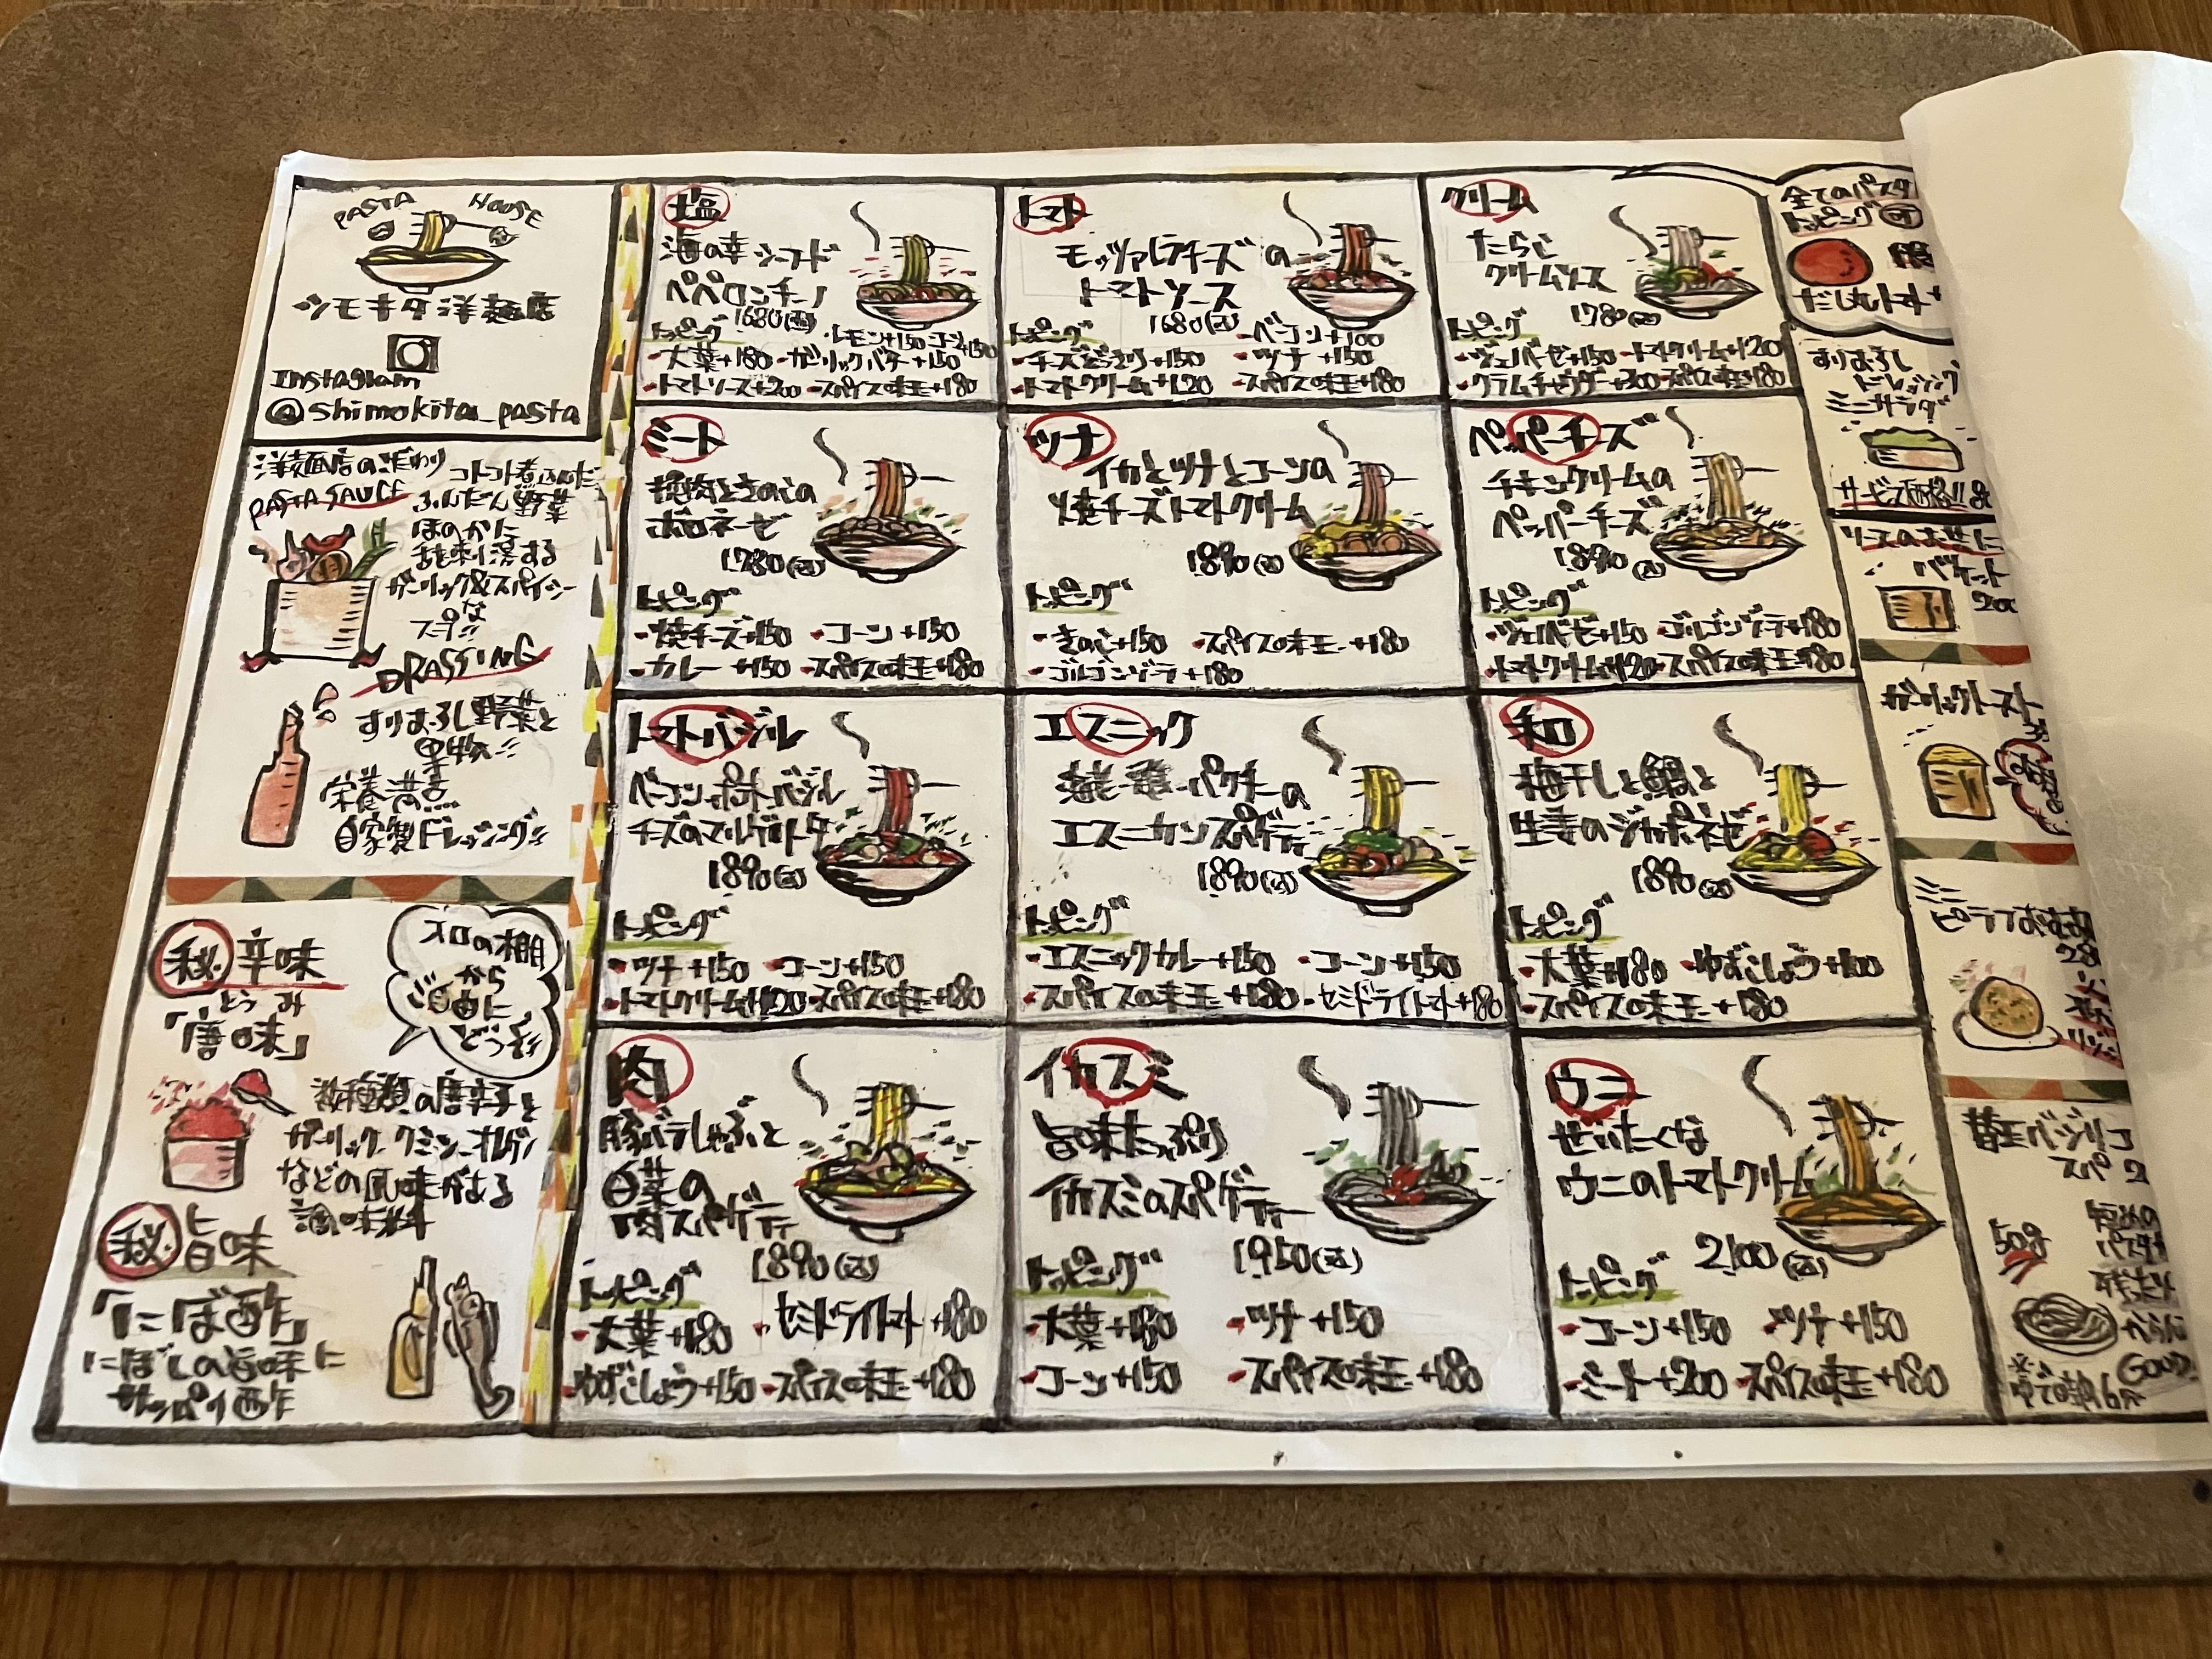 PASTA HOUSE
シモキタ洋麺店
Instagram
@shimokita_pasta
洋麺店のこだわり
PASTA SAUCE
コトコト煮込んだ
ふんだん野菜
ほのかに
ガーリック&スパイシー
な
DRASSING
すりおろし野菜と
果物!!
栄養満点
自家製ドレッシング!!
秘 辛味
とうみ
「唐味」
からご自由にどうぞ
数種類の唐辛子と
ガーリック、クミン、オレガノ
などの風味がある
調味料
秘 旨味
「にぼ酢」
にぼしの旨味に
サッパイ酢
塩
海の幸シーフード
ペペロンチーノ
1680(込)
トッピング
・レモン+150 ・コーン+150
・大葉+180 ・ガーリックバター+150
・トマトソース+200 ・スパイスの味玉+180
トマト
モッツァレラチーズの
トマトソース
1680(込)
トッピング
・ベーコン+100
・チーズどっさり+150 ・ツナ+150
・トマトクリーム+120 ・スパイスの味玉+180
クリーム
たらこ
クリームソース
1780(込)
トッピング
・ジェノベーゼ+150 ・トマトクリーム+120
・クラムチャウダー+300 ・スパイスの味玉+180
ミート
挽肉ときのこの
ボロネーゼ
1780(込)
トッピング
・焼チーズ+150 ・コーン+150
・カレー+150 ・スパイスの味玉+180
ツナ
イカとツナとコーンの
焼チーズトマトクリーム
1890(込)
トッピング
・きのこ+150 ・スパイスの味玉+180
・ゴルゴンゾーラ+180
ペッパーチーズ
チキンクリームの
ペッパーチーズ
1890(込)
トッピング
・ジェノベーゼ+150 ・ゴルゴンゾーラ+180
・トマトクリーム+120 ・スパイスの味玉+180
トマトバジル
ベーコン、ポテト、バジル
チーズのマルゲリータ
1890(込)
トッピング
・ツナ+150 ・コーン+150
・トマトクリーム+120 ・スパイスの味玉+180
エスニック
海老・鶏・パクチーの
エスニカンスパゲティ
1890(込)
トッピング
・エスニックカレー+150 ・コーン+150
・スパイスの味玉+180 ・セミドライトマト+180
和
梅干しと鯛と
生姜のジャポネーゼ
1890(込)
トッピング
・大葉+180 ・ゆずこしょう+100
・スパイスの味玉+180
肉
豚バラしゃぶと
白菜の
肉スパゲティ
1890(込)
トッピング
・大葉+180 ・セミドライトマト+180
・ゆずこしょう+150 ・スパイスの味玉+180
イカスミ
旨味たっぷり
イカスミのスパゲティー
1950(込)
トッピング
・大葉+180 ・ツナ+150
・コーン+150 ・スパイスの味玉+180
ウニ
ぜいたくな
ウニのトマトクリーム
2100(込)
トッピング
・コーン+150 ・ツナ+150
・ミート+200 ・スパイスの味玉+180
全てのパスタ
トッピング可
だし丸トマト
すりおろし
ドレッシング
ミニサラダ
サービス価格!!
ソースのお供に
バケット
ガーリックトースト
ミニ
ピラフおむすび
替玉バジリコ
スパ
50g
GOOD
※ゆで時間6分